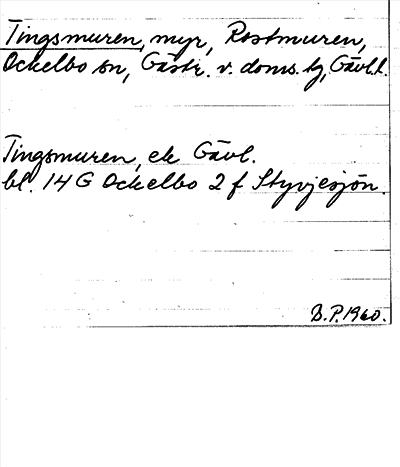 Tingsmuren, myr, Rostmuren,
Ockelbo sn, Gästr. v. doms. tg, Gävl. l.
Tingsmuren, ek Gävl.
bl. 14 G Ockelbo 2 f Styvjesjön.
B.P. 1960.